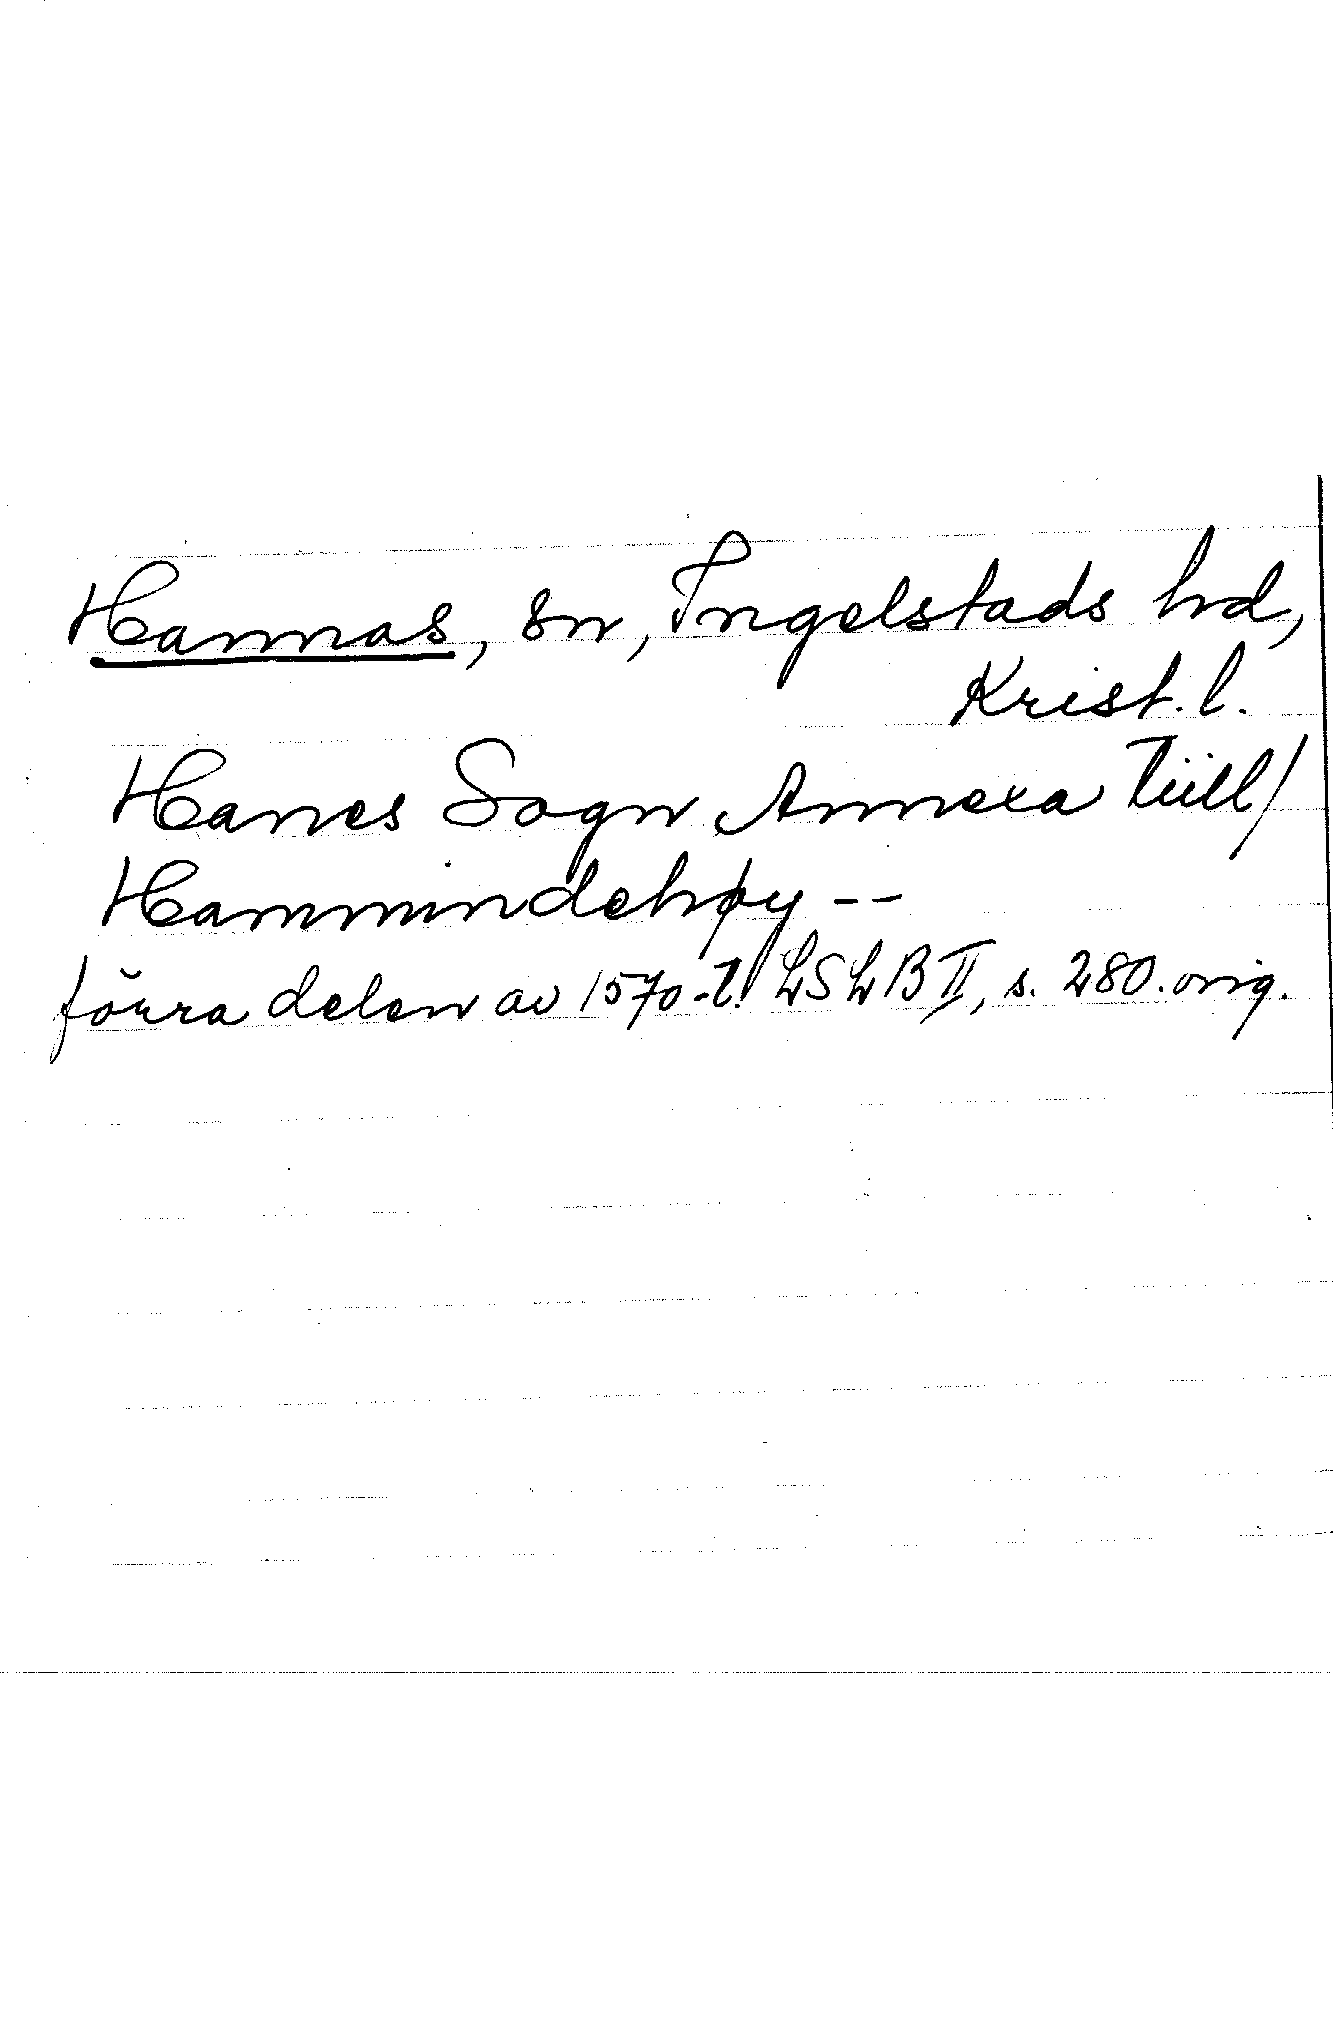 Hannas, sn, Ingelstads hd,
Krist. l.
Hanes Sogn Annexa tiill/
Hammindehøy --
förra delen av 1570-t. LSLB II, s. 280. orig.